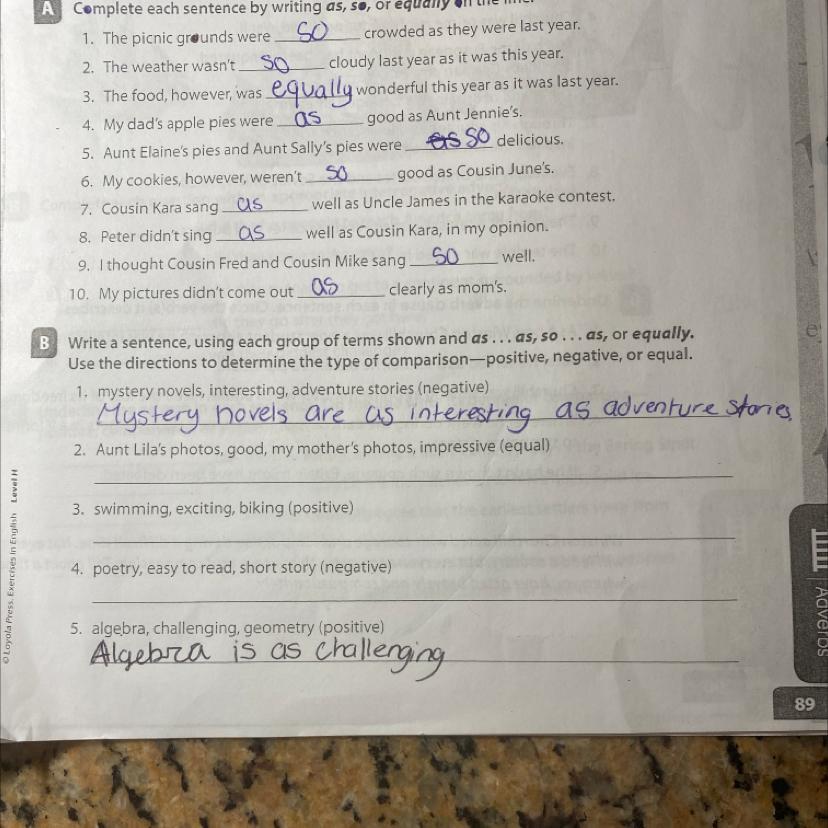 A Complete each sentence by writing as, so, or equally on the line.
1. The picnic grounds were so crowded as they were last year.
2. The weather wasn't so cloudy last year as it was this year.
3. The food, however, was equally wonderful this year as it was last year.
4. My dad's apple pies were as good as Aunt Jennie's.
5. Aunt Elaine's pies and Aunt Sally's pies were as so delicious.
6. My cookies, however, weren't so good as Cousin June's.
7. Cousin Kara sang as well as Uncle James in the karaoke contest.
8. Peter didn't sing as well as Cousin Kara, in my opinion.
9. I thought Cousin Fred and Cousin Mike sang so well.
10. My pictures didn't come out as clearly as mom's.
B Write a sentence, using each group of terms shown and as . . . as, so . . . as, or equally.
Use the directions to determine the type of comparison—positive, negative, or equal.
1. mystery novels, interesting, adventure stories (negative)
Mystery novels are as interesting as adventure stories
2. Aunt Lila's photos, good, my mother's photos, impressive (equal)
3. swimming, exciting, biking (positive)
4. poetry, easy to read, short story (negative)
5. algebra, challenging, geometry (positive)
Algebra is as challenging
© Loyola Press. Exercises in English Level H
Adverbs
89